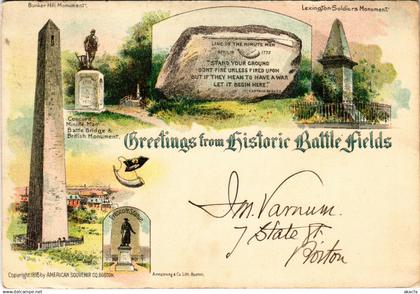 Bunker Hill Monument.
Lexington Soldiers Monument.
LINE OF THE MINUTE MEN
APRIL 19 1775
"STAND YOUR GROUND
DONT FIRE UNLESS FIRED UPON
BUT IF THEY MEAN TO HAVE A WAR
LET IT BEGIN HERE."
CAPTAIN PARKER
Concord
Minute Man
Battle Bridge &
British Monument.
Greetings from Historic Battle Fields
J.M. Varnum.
7 State St.
Boston
Copyright 1895 by AMERICAN SOUVENIR CO. BOSTON.
Armstrong & Co. Lith. Boston.